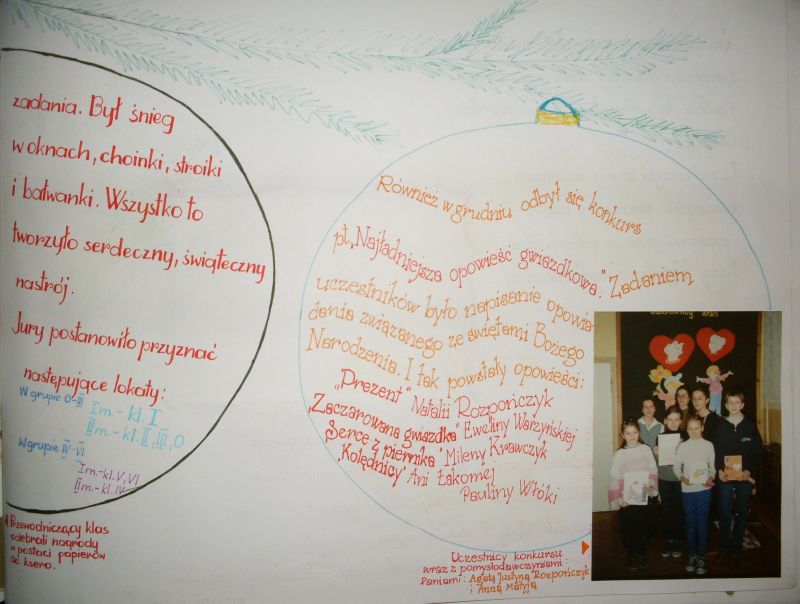 zadania. Był śnieg
w oknach, choinki, stroiki
i bałwanki. Wszystko to
tworzyło serdeczny, świąteczny
nastrój.
Jury postanowiło przyznać
następujące lokaty:
W grupie 0-III
I m.- kl. I
II m.- kl. II, III, 0
W grupie IV-VI
I m.- kl. V, VI
II m.- kl. IV
Przewodniczący klas
odebrali nagrody
w postaci papierów
do ksero.
Również w grudniu odbył się konkurs
pt. „Najładniejsza opowieść gwiazdkowa." Zadaniem
uczestników było napisanie opowia
dania związanego ze świętami Bożego
Narodzenia. I tak powstały opowieści:
„Prezent" Natalii Rozpończyk
„Zaczarowana gwiazdka" Eweliny Warzyńskiej
Serce z piernika" Mileny Krawczyk
„Kolędnicy" Ani Łakomej
Pauliny Włóki
Uczestnicy konkursu
wraz z pomysłodawczyniami:
Paniami: Agatą Justyną Rozpończyk
i Anną Matyją